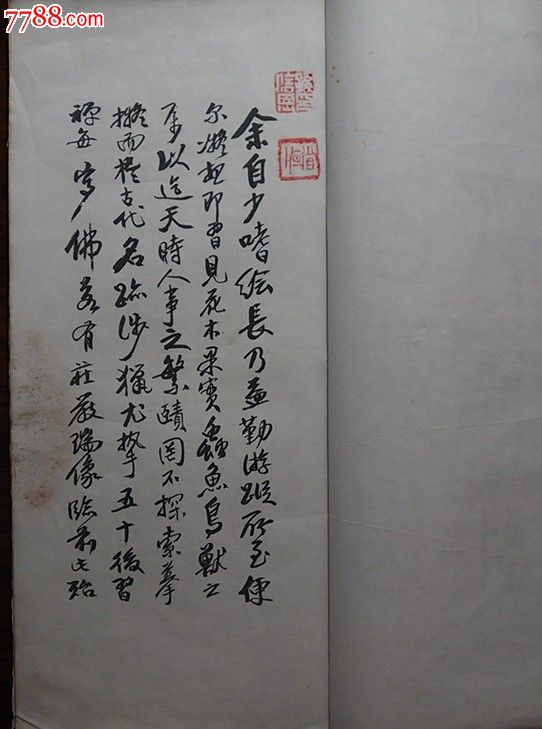 7788.com
余自少嗜绘長乃益勤游蹤所至便
尔凝想即習見花木果實蟲魚鳥獸之
屬以迄天時人事之繁賾罔不探索摹
擬而於古代名跡涉獵尤摯五十後習
禪每寫佛若有莊嚴瑞像臨前此殆